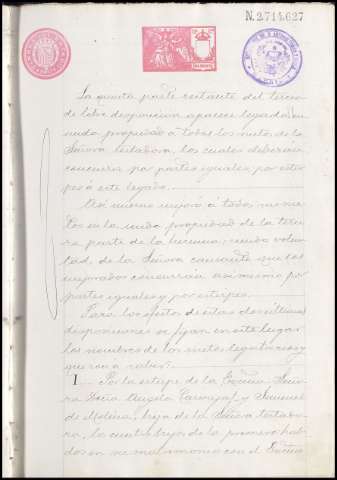 N. 2.711.627
La quinta parte restante del tercio
de libre disposicion aparece legada en
nuda propiedad á todos los nietos de la
Señora testadora, los cuales deberán
concurrir por partes iguales, por estir-
pes á este legado.
Asi mismo mejoró á todos sus nie-
tos en la nuda propiedad de la terce-
ra parte de la herencia, siendo volun-
tad de la Señora causante que los
mejorados concurran asi mismo por
partes iguales y por estirpes.
Para los efectos de estas dos últimas
disposiciones se fijan en este lugar
los nombres de los nietos legatarios y
que son á saber:
I Por la estirpe de la Excma. Seño-
ra Doña Angela Carvajal y
de Molina, hija de la Señora testado-
ra, los cuatro hijos de la primera habi-
dos en su matrimonio con el Excmo